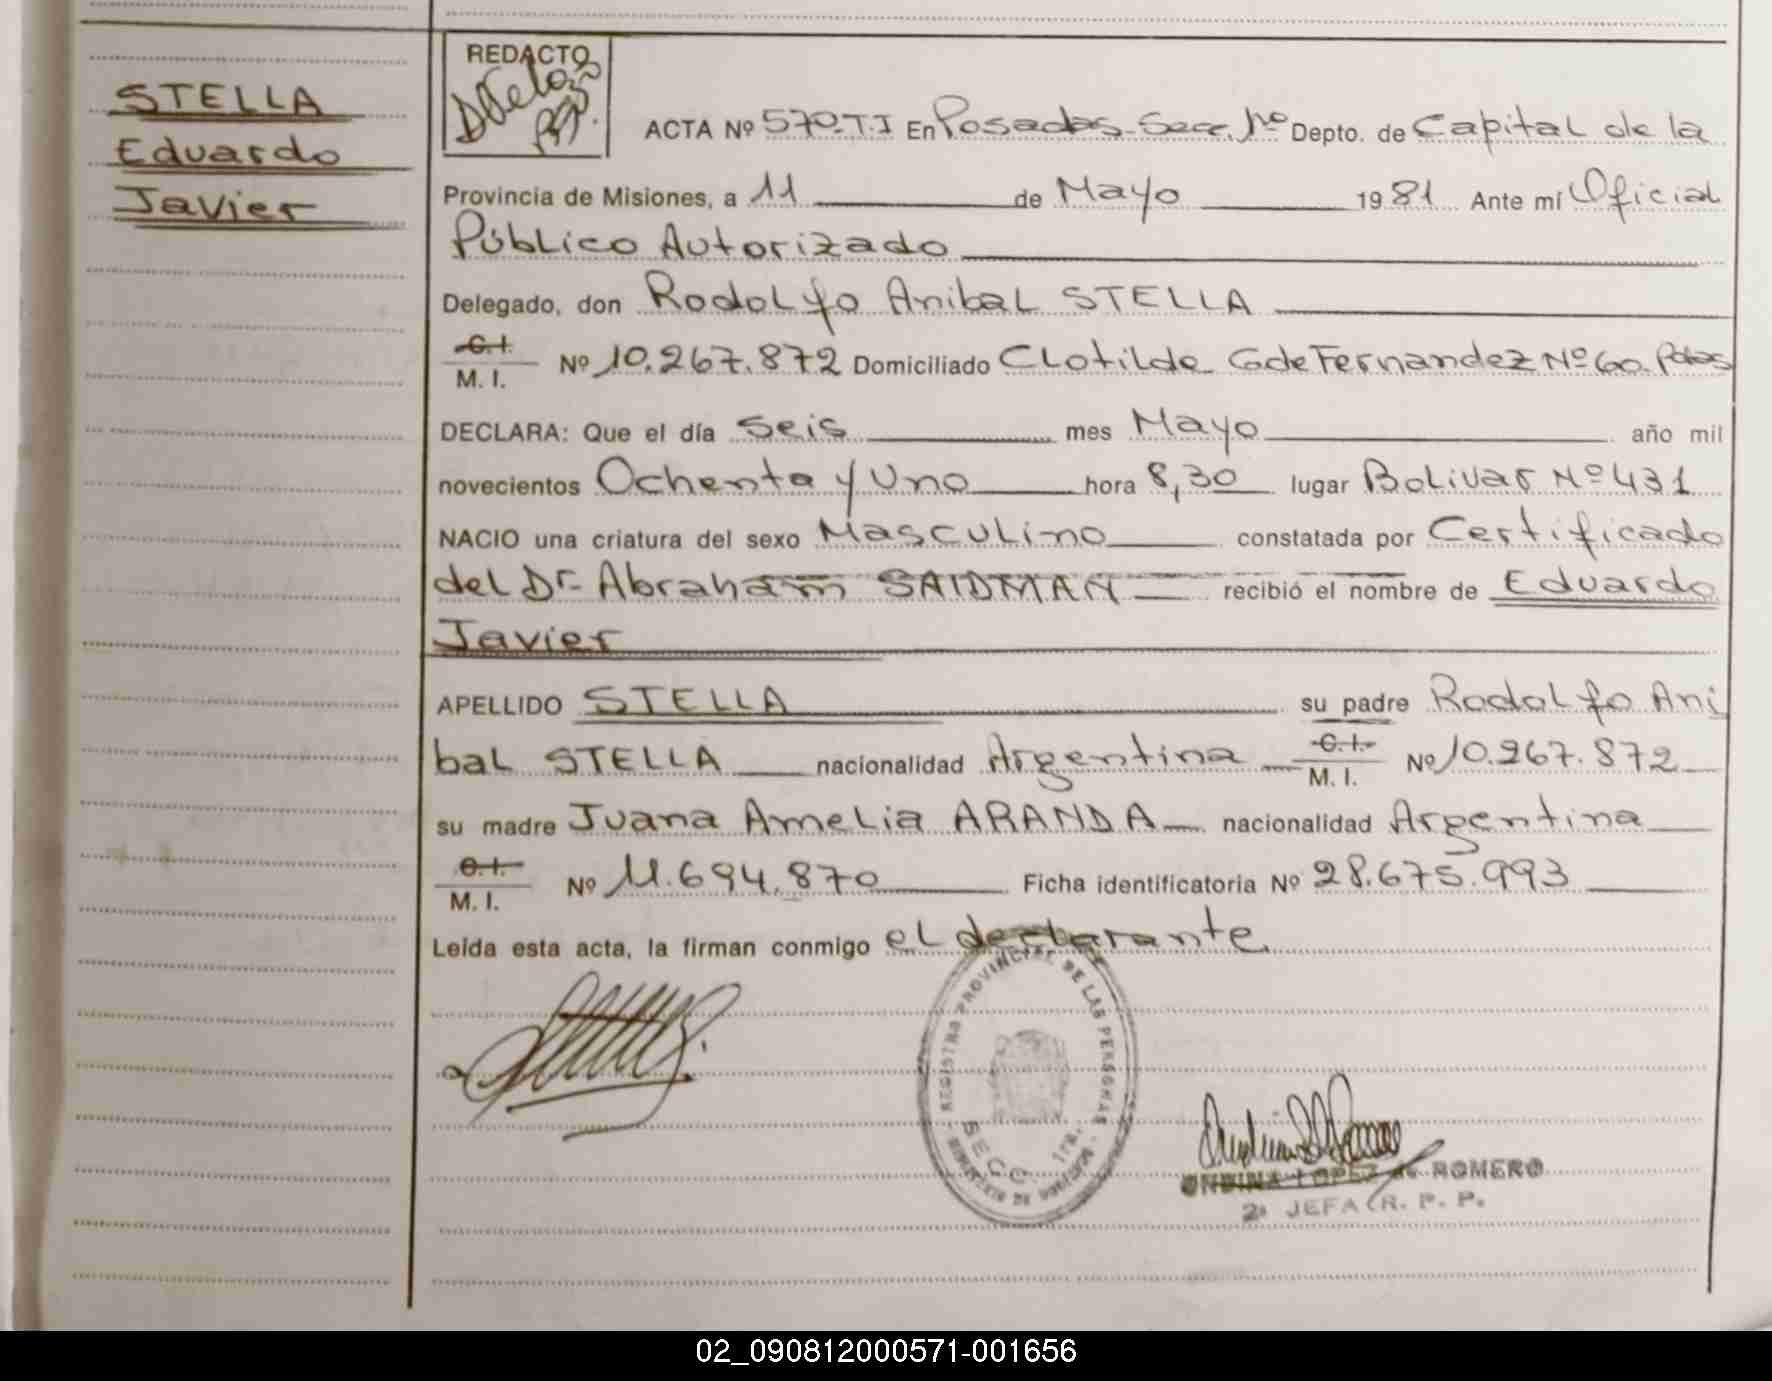 STELLA
Eduardo
Javier
REDACTO
ACTA Nº 570.T.I En Posadas-Secc. 1º Depto. de Capital de la
Provincia de Misiones, a 11 de Mayo 1981 Ante mí Oficial
Público Autorizado
Delegado, don Rodolfo Anibal STELLA
C.I. M.I. Nº 10.267.872 Domiciliado Clotilde G de Fernandez Nº 60. Pdas
DECLARA: Que el día Seis mes Mayo año mil
novecientos Ochenta y Uno hora 8,30 lugar Bolivar Nº 431
NACIO una criatura del sexo Masculino constatada por Certificado
del Dr. Abraham SAIDMAN recibió el nombre de Eduardo
Javier
APELLIDO STELLA su padre Rodolfo Ani
bal STELLA nacionalidad Argentina C.I. M.I. Nº 10.267.872
su madre Juana Amelia ARANDA nacionalidad Argentina
C.I. M.I. Nº 11.694.870 Ficha identificatoria Nº 28.675.993
Leída esta acta, la firman conmigo el declarante
REGISTRO PROVINCIAL DE LAS PERSONAS
SECC. 1ra.
ONDINA LOPEZ de ROMERO
2ª JEFA (R. P. P.
02_090812000571-001656